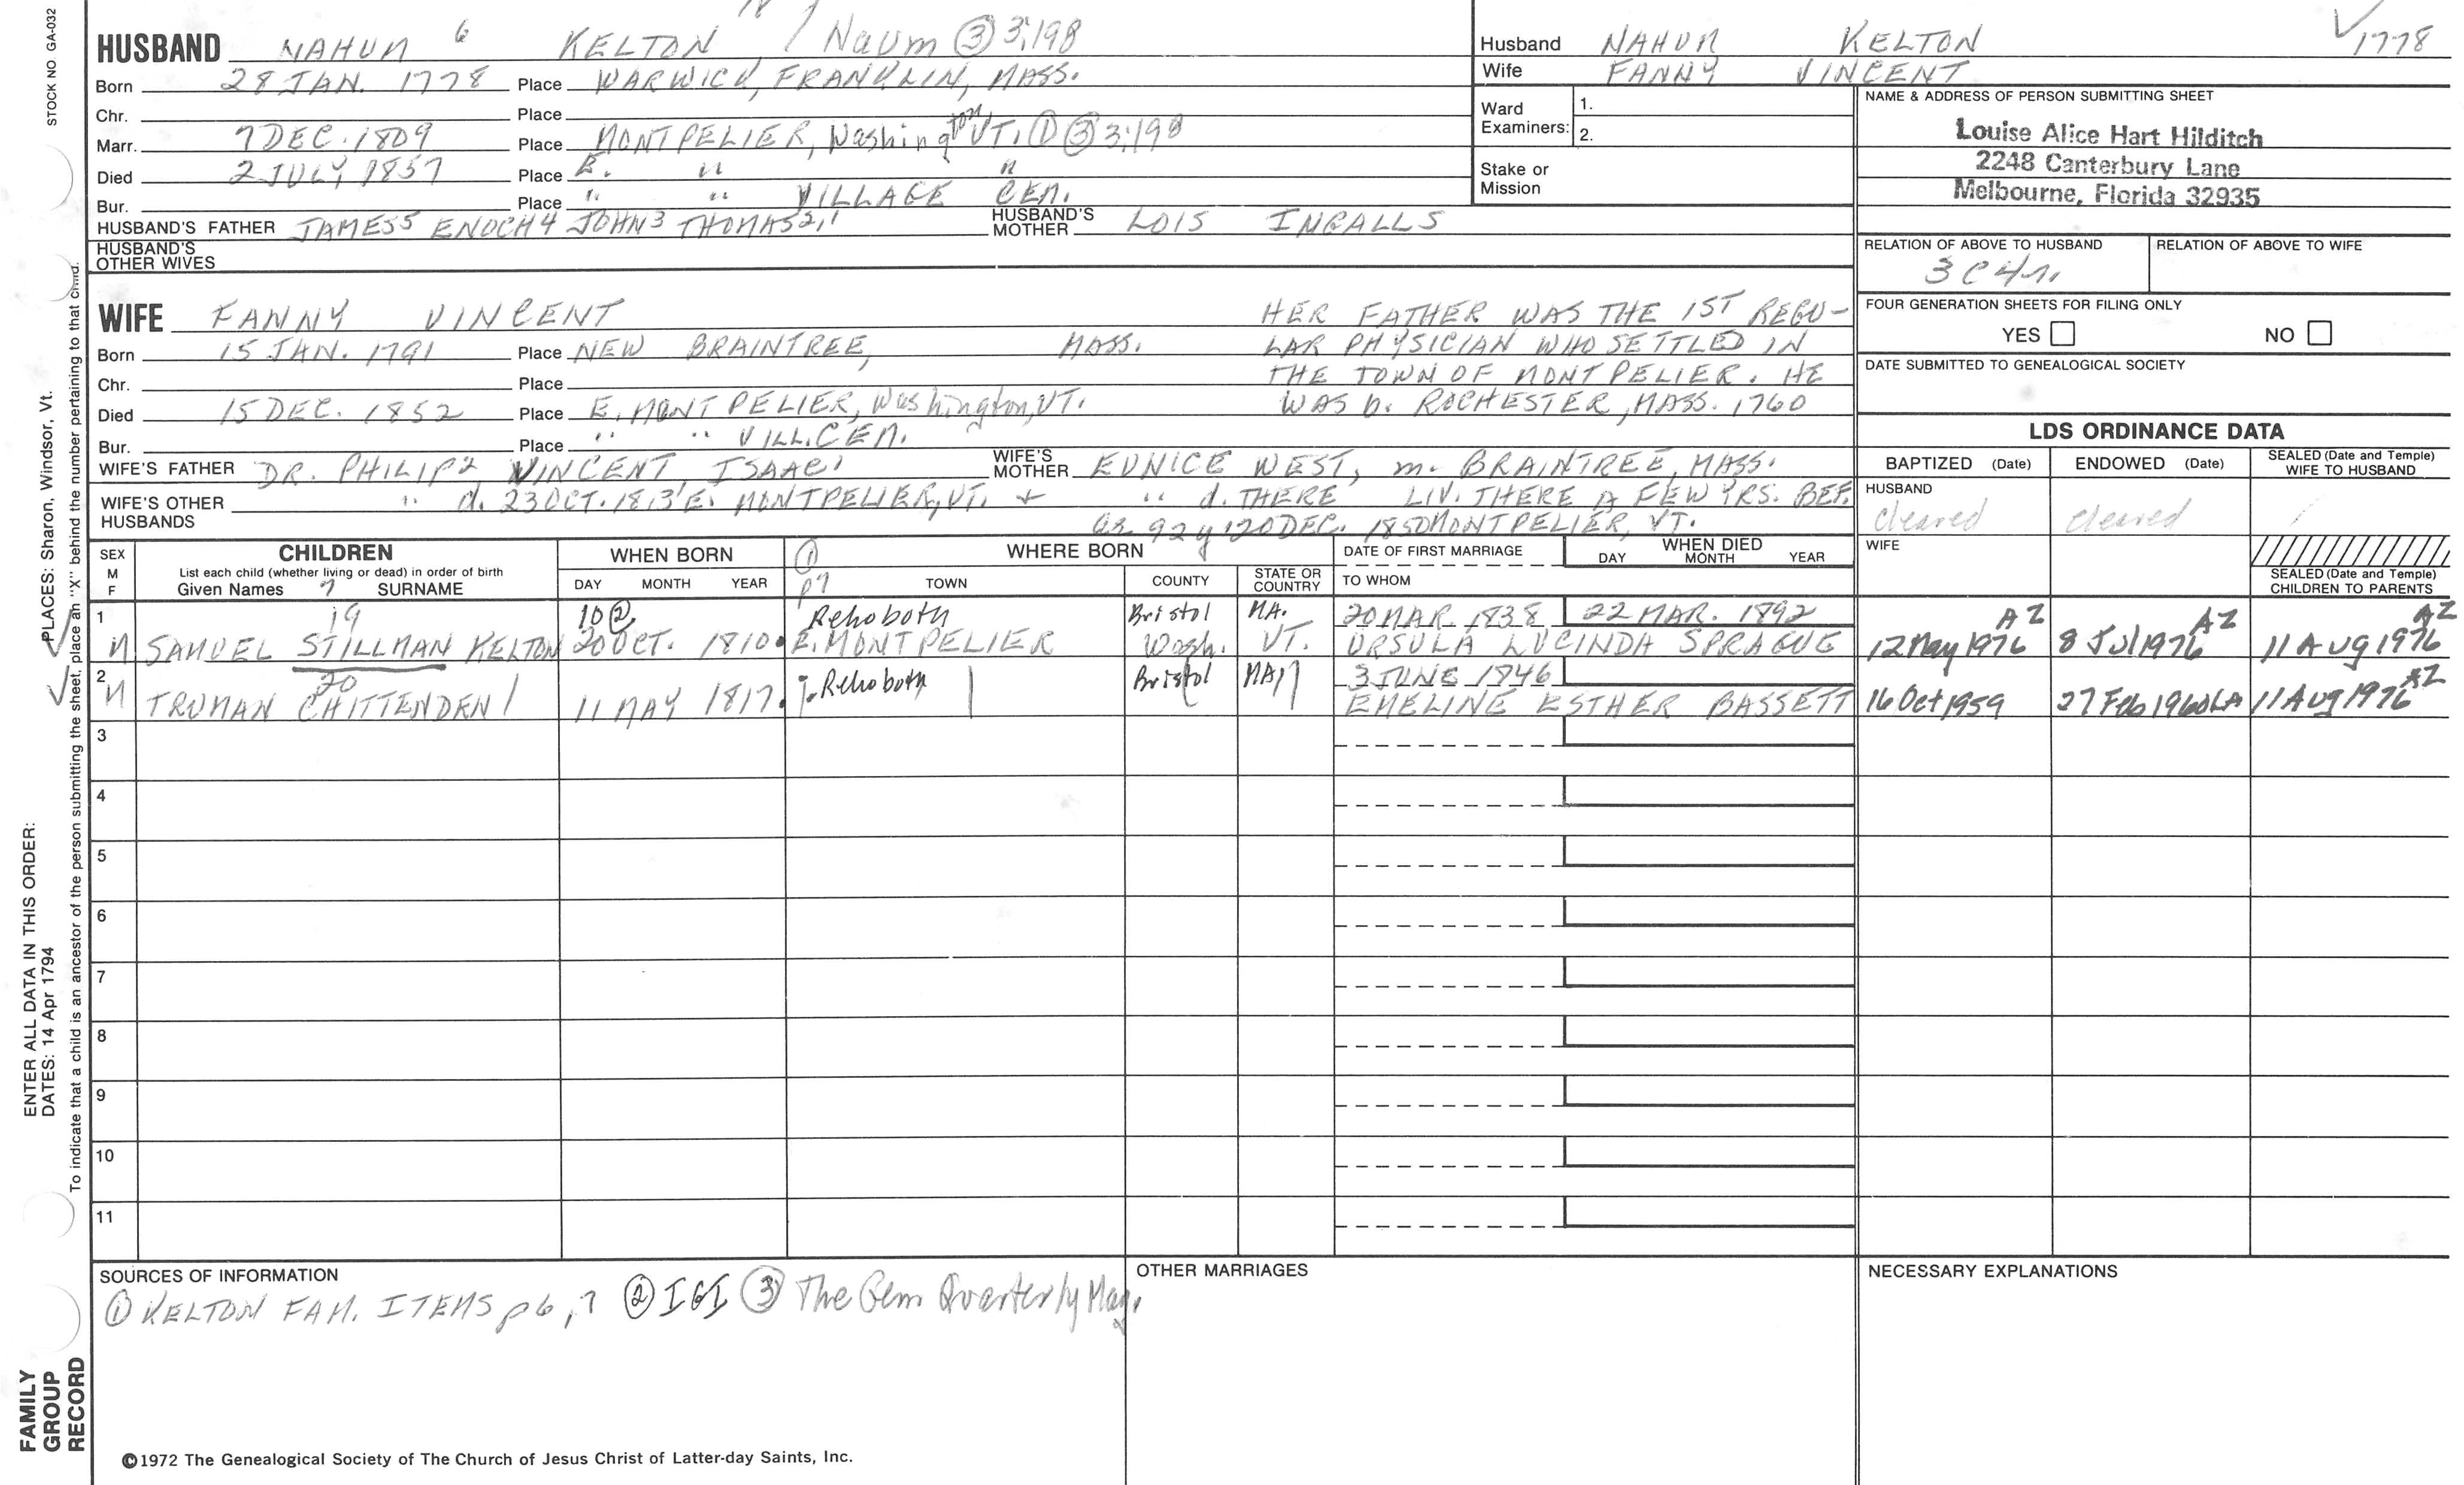 STOCK NO GA-032
HUSBAND NAHUM 6 KELTON / Naum ③ 3:198
Born 28 JAN. 1778 Place WARWICK, FRANKLIN, MASS.
Chr. Place
Marr. 7 DEC. 1809 Place MONTPELIER, Washington VT. ① ③ 3:198
Died 2 JULY 1857 Place E. " "
Bur. Place " " VILLAGE CEM.
HUSBAND'S FATHER JAMES5 ENOCH4 JOHN3 THOMAS2,1 HUSBAND'S MOTHER LOIS INGALLS
HUSBAND'S OTHER WIVES
Husband NAHUM KELTON 1778
Wife FANNY VINCENT
Ward Examiners: 1.
2.
Stake or Mission
NAME & ADDRESS OF PERSON SUBMITTING SHEET
Louise Alice Hart Hilditch
2248 Canterbury Lane
Melbourne, Florida 32935
RELATION OF ABOVE TO HUSBAND RELATION OF ABOVE TO WIFE
3C4r.
FOUR GENERATION SHEETS FOR FILING ONLY
YES NO
DATE SUBMITTED TO GENEALOGICAL SOCIETY
WIFE FANNY VINCENT
Born 15 JAN. 1791 Place NEW BRAINTREE, MASS.
Chr. Place
Died 15 DEC. 1852 Place E. MONTPELIER, Washington, VT.
Bur. Place " " VILL. CEM.
HER FATHER WAS THE 1ST REGU-
LAR PHYSICIAN WHO SETTLED IN
THE TOWN OF MONTPELIER. HE
WAS b. ROCHESTER, MASS. 1760
WIFE'S FATHER DR. PHILIP2 VINCENT, ISAAC1 WIFE'S MOTHER EUNICE WEST, m. BRAINTREE, MASS.
WIFE'S OTHER HUSBANDS " d. 23 OCT. 1813 E. MONTPELIER, VT. + " d. THERE LIV. THERE A FEW YRS. BEF.
as 92 y 20 DEC. 1850 MONTPELIER, VT.
LDS ORDINANCE DATA
BAPTIZED (Date) ENDOWED (Date) SEALED (Date and Temple) WIFE TO HUSBAND
HUSBAND
cleared cleared
WIFE
SEALED (Date and Temple) CHILDREN TO PARENTS
SEX M F CHILDREN
List each child (whether living or dead) in order of birth
Given Names 7 SURNAME
WHEN BORN
DAY MONTH YEAR
① p7 WHERE BORN
TOWN COUNTY STATE OR COUNTRY
DATE OF FIRST MARRIAGE
TO WHOM
WHEN DIED
DAY MONTH YEAR
1 19 10② Rehoboth Bristol MA. 20 MAR. 1838 22 MAR. 1892 AZ AZ AZ
M SAMUEL STILLMAN KELTON 20 OCT. 1810 E. MONTPELIER Wash. VT. URSULA LUCINDA SPRAGUE 12 May 1976 8 Jul 1976 11 Aug 1976
2 20 Rehoboth Bristol MA 3 JUNE 1846 AZ
M TRUMAN CHITTENDEN 11 MAY 1817 EMELINE ESTHER BASSETT 16 Oct 1959 27 Feb 1960 LA 11 Aug 1976
3
4
5
6
7
8
9
10
11
SOURCES OF INFORMATION
① KELTON FAM. ITEMS p 6, 7 ② IGI ③ The Gem Quarterly Mag.
OTHER MARRIAGES
NECESSARY EXPLANATIONS
©1972 The Genealogical Society of The Church of Jesus Christ of Latter-day Saints, Inc.
FAMILY
GROUP
RECORD
ENTER ALL DATA IN THIS ORDER:
DATES: 14 Apr 1794
PLACES: Sharon, Windsor, Vt.
To indicate that a child is an ancestor of the person submitting the sheet, place an "X" behind the number pertaining to that child.